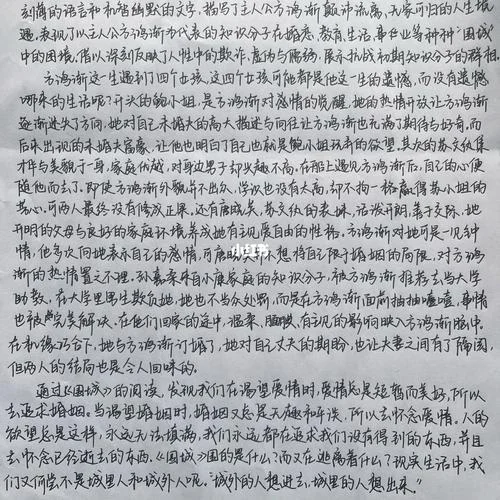 刻薄的语言和机智幽默的文字,描写了主人公方鸿渐颠沛流离、无家可归的人生旅
遇,表现了以主人公方鸿渐为代表的知识分子在婚恋、教育生活、事业等种种"围城
中的困境,借以深刻反映了人性中的欺诈、虚伪与懦弱,展示抗战初期知识分子的群相.
方鸿渐这一生遇到了四个女孩,这四个女孩可他都是他这一生的遗憾,而没有遗憾
哪来的生活呢?开头的鲍小姐,是方鸿渐对感情的觉醒,她的热情开放让方鸿渐
逐渐迷失了方向,她对自己未婚夫的高大描述与向往让方鸿渐也充满了期待与好奇.而
后来出现的未婚夫
让他也明白了自己也就是鲍小姐玩弄的欲望.其次的苏文纨集
才华与美貌于一身,家庭优越,对身边男子却兴趣不高.在船上遇见方鸿渐后,自己的心便
随他而去了.即使方鸿渐外貌并不出众,学识也没有太高,却不拘一格赢得苏小姐的
芳心,可两人最终没有修成正果.还有唐晓芙,苏文纨的表妹,活泼开朗,善于交际,她
开明的父母与良好的家庭环境养成她有主见展自由的性格.方鸿渐对她可是一见钟
情,他多次向她表示自己的感情,可唐
不想将自己限于婚姻的局限,对方鸿
渐的热情置之不理.孙嘉柔来自小康家庭的知识分子,被方鸿渐推荐去当大学
助教,在大学里男生欺负她,她也不当众处罚,而是在方鸿渐面前抽抽噎噎,事情
也被完美解决.在他们回家的途中,温柔、腼腆,有主见的影响映入方鸿渐脑中.
在机缘巧合下,她与方鸿渐订婚了,她对自己丈夫的期盼,也让夫妻之间有了隔阂,
但两人的结局也是令人回味的。
通过《围城》的阅读,发现我们在渴望爱情时,爱情总是短暂而美好,所以
去追求婚姻.当渴望婚姻时,婚姻又总是无趣和平淡,所以去怀念爱情。人的
欲望总是这样,永远无法填满,我们永远都在追求我们没有得到的东西,并且
去怀念已经逝去的东西.《围城》围的是什么?而又在逃离着什么?现实生活中,我
们又何尝不是城里人和城外人呢."城外的人想进去,城里的人想出来."
小红书